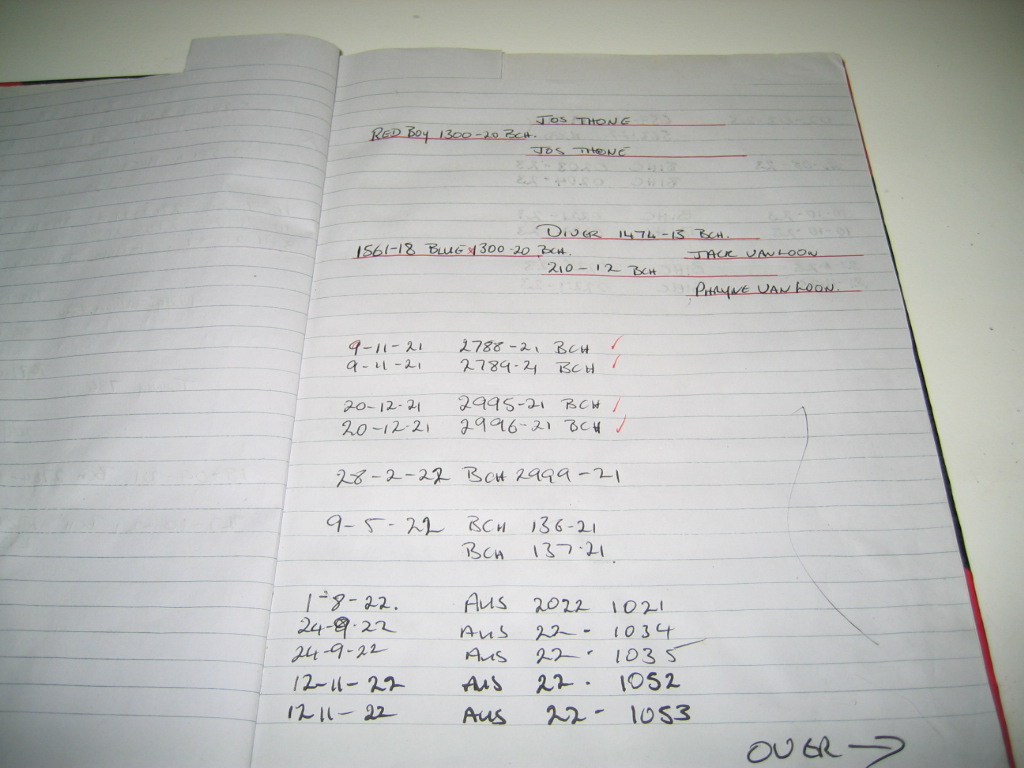 JOS THONE
RED BOY 1300-20 BCH.
JOS THONE
DIVER 1474-13 BCH.
1561-18 BLUE x 1300-20 BCH. JACK VAN LOON
210-12 BCH
PHRYNE VAN LOON.
9-11-21 2788-21 BCH ✓
9-11-21 2789-21 BCH ✓
20-12-21 2995-21 BCH ✓
20-12-21 2996-21 BCH ✓
28-2-22 BCH 2999-21
9-5-22 BCH 136-21
BCH 137-21
1-8-22. AUS 2022 1021
24-9-22 AUS 22- 1034
24-9-22 AUS 22- 1035
12-11-22 AUS 22- 1052
12 11-22 AUS 22- 1053
OVER →